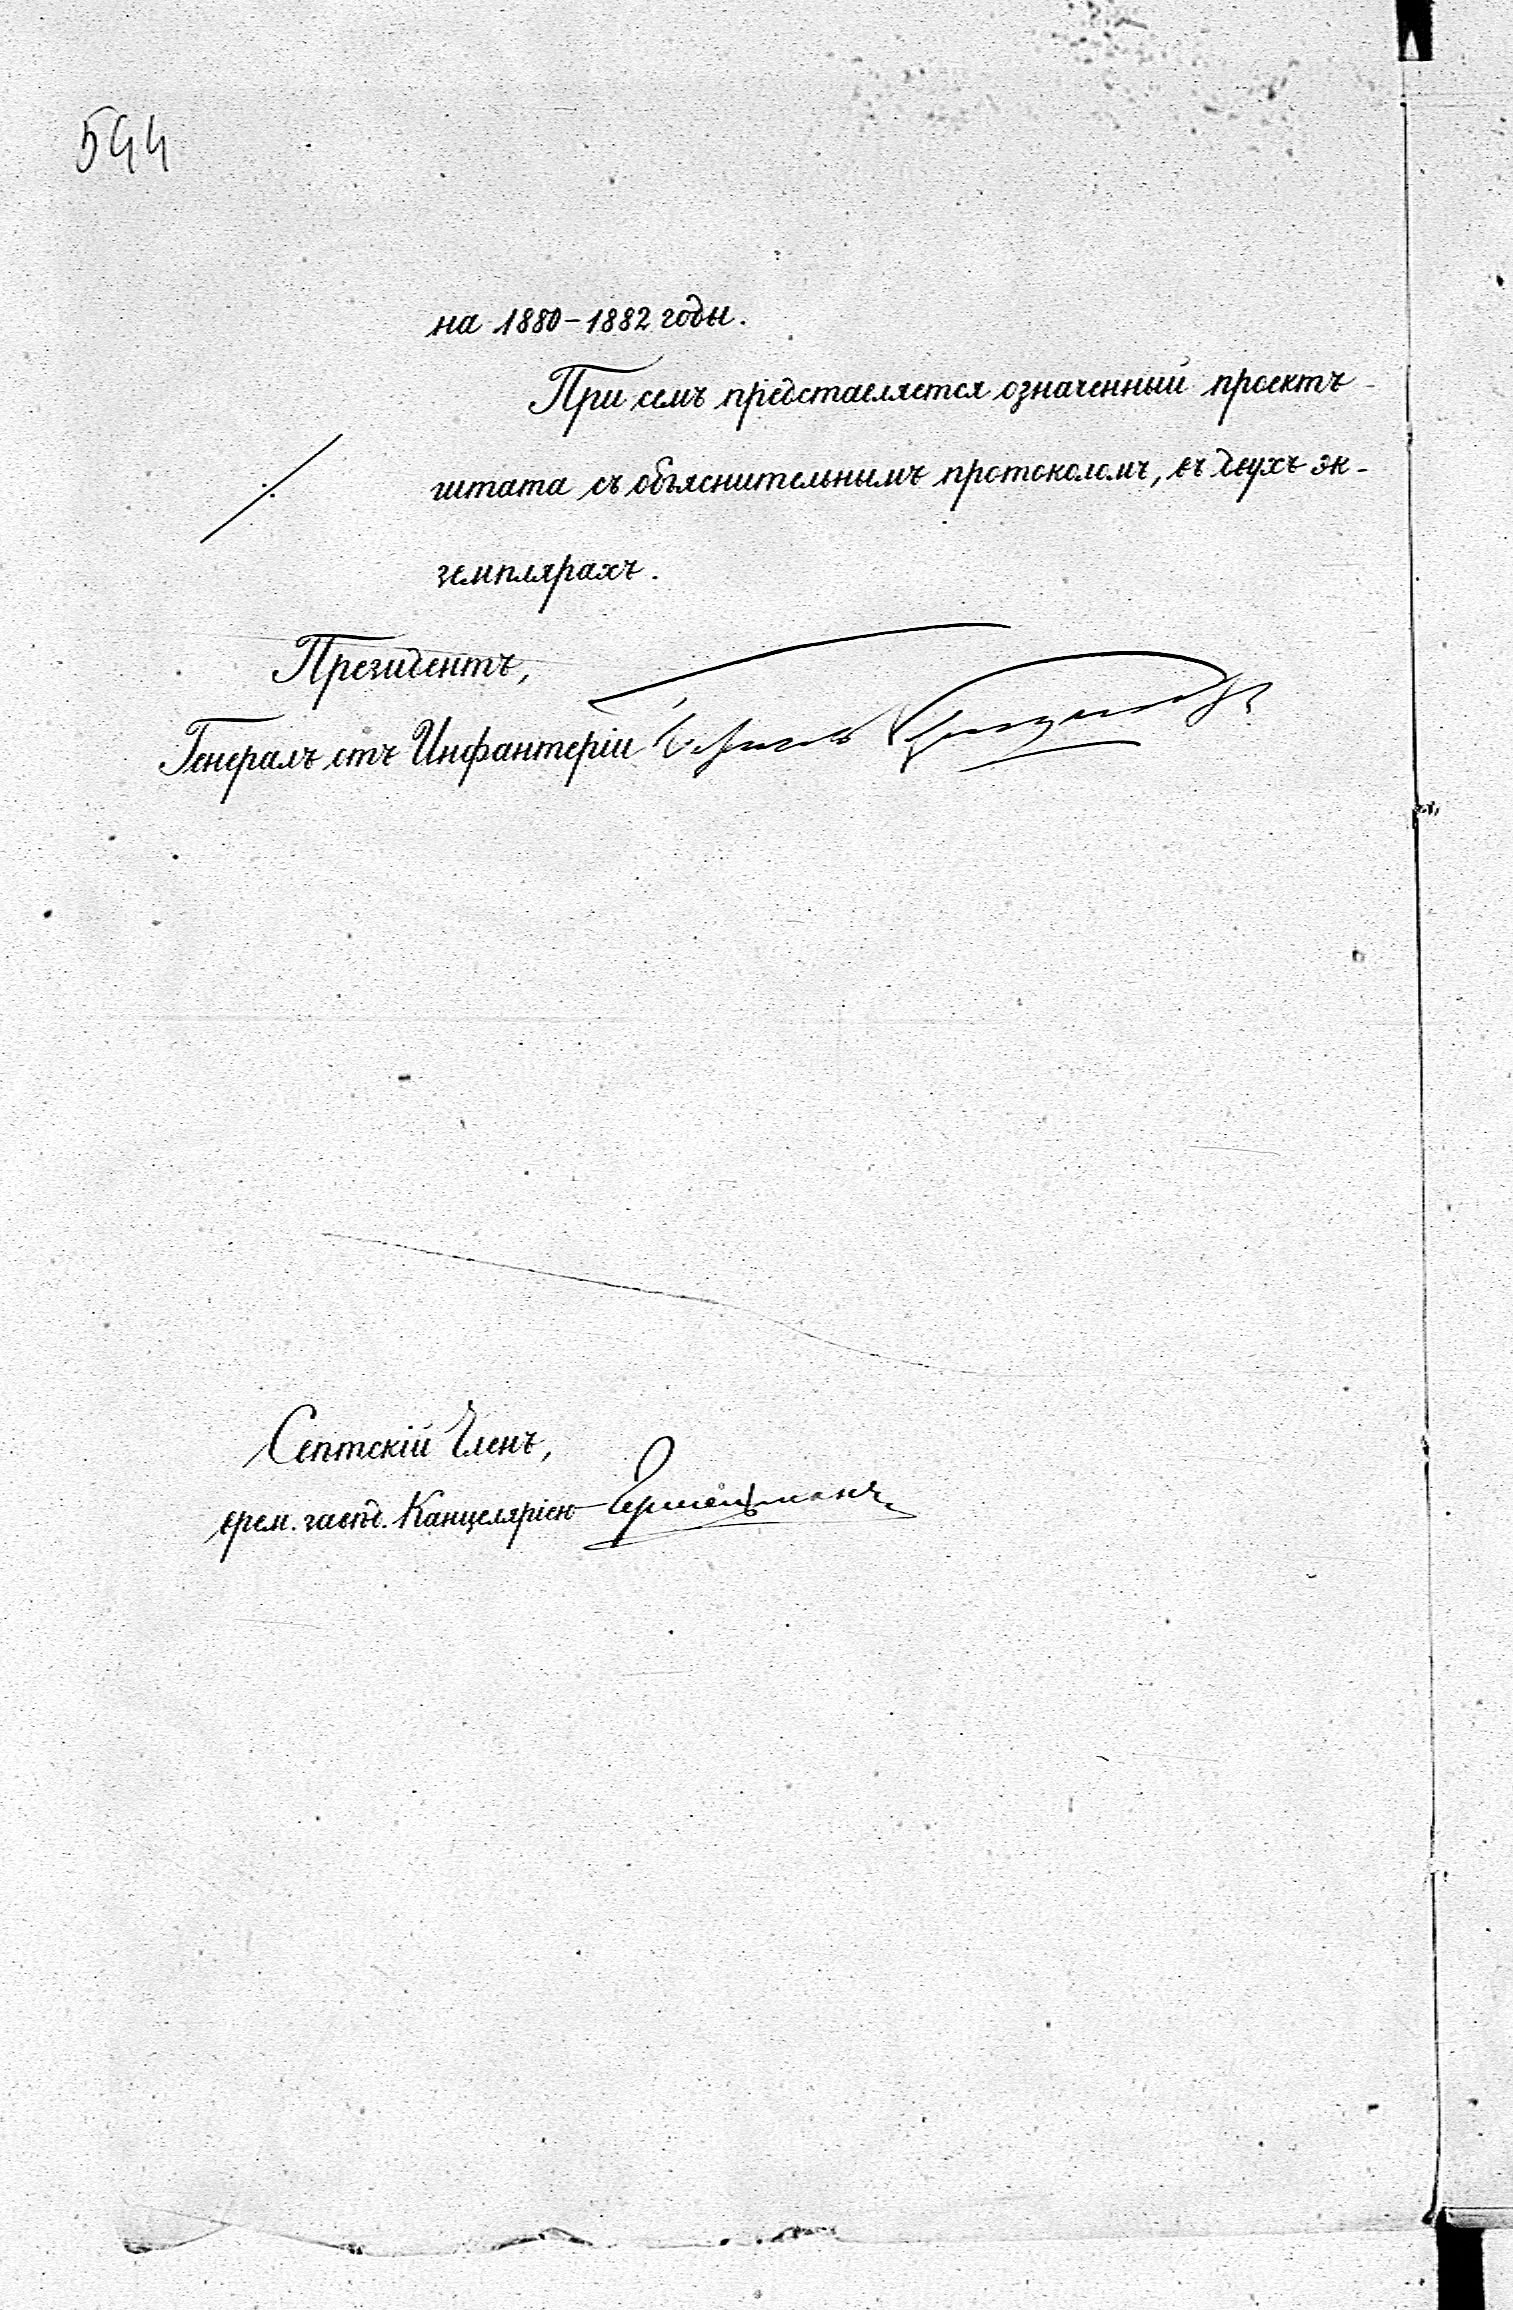 544
на 1880-1882 годы.
При семъ представляется означенный проектъ
штата съ объяснительнымъ протоколомъ, въ двухъ эк-
земплярахъ.
Президентъ,
Генералъ отъ Инфантеріи
Совѣтскій Членъ,
врем. завѣд. Канцеляріею